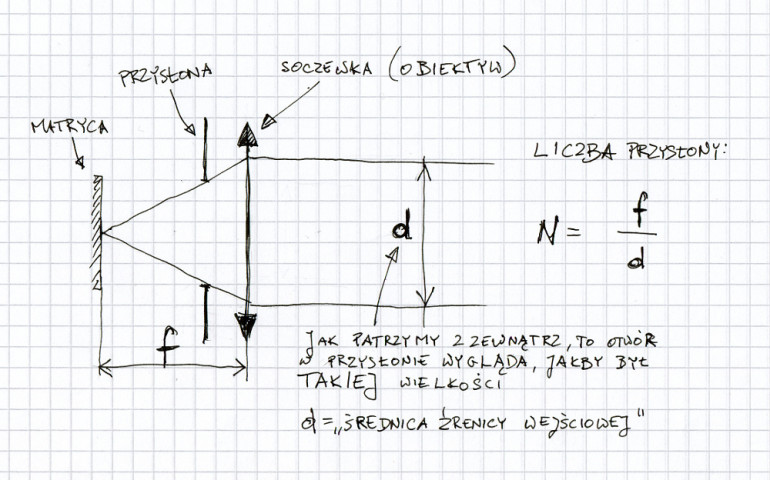 PRZYSŁONA
SOCZEWKA (OBIEKTYW)
MATRYCA
LICZBA PRZYSŁONY:
N = f / d
d
f
JAK PATRZYMY Z ZEWNĄTRZ, TO OTWÓR
W PRZYSŁONIE WYGLĄDA, JAKBY BYŁ
TAKIEJ WIELKOŚCI
d = „ŚREDNICA ŹRENICY WEJŚCIOWEJ"